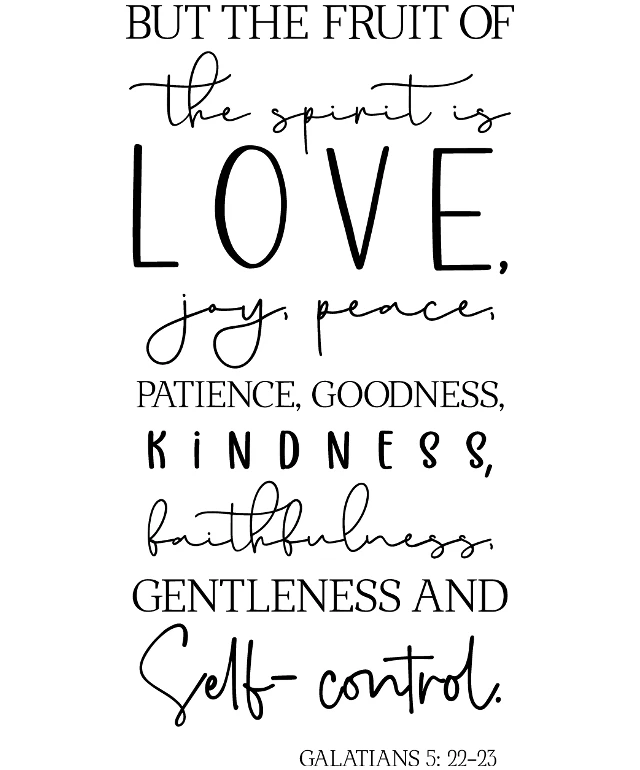 BUT THE FRUIT OF
the spirit is
LOVE,
joy, peace,
PATIENCE, GOODNESS,
KiNDNESS,
faithfulness,
GENTLENESS AND
Self-control.
GALATIANS 5: 22-23